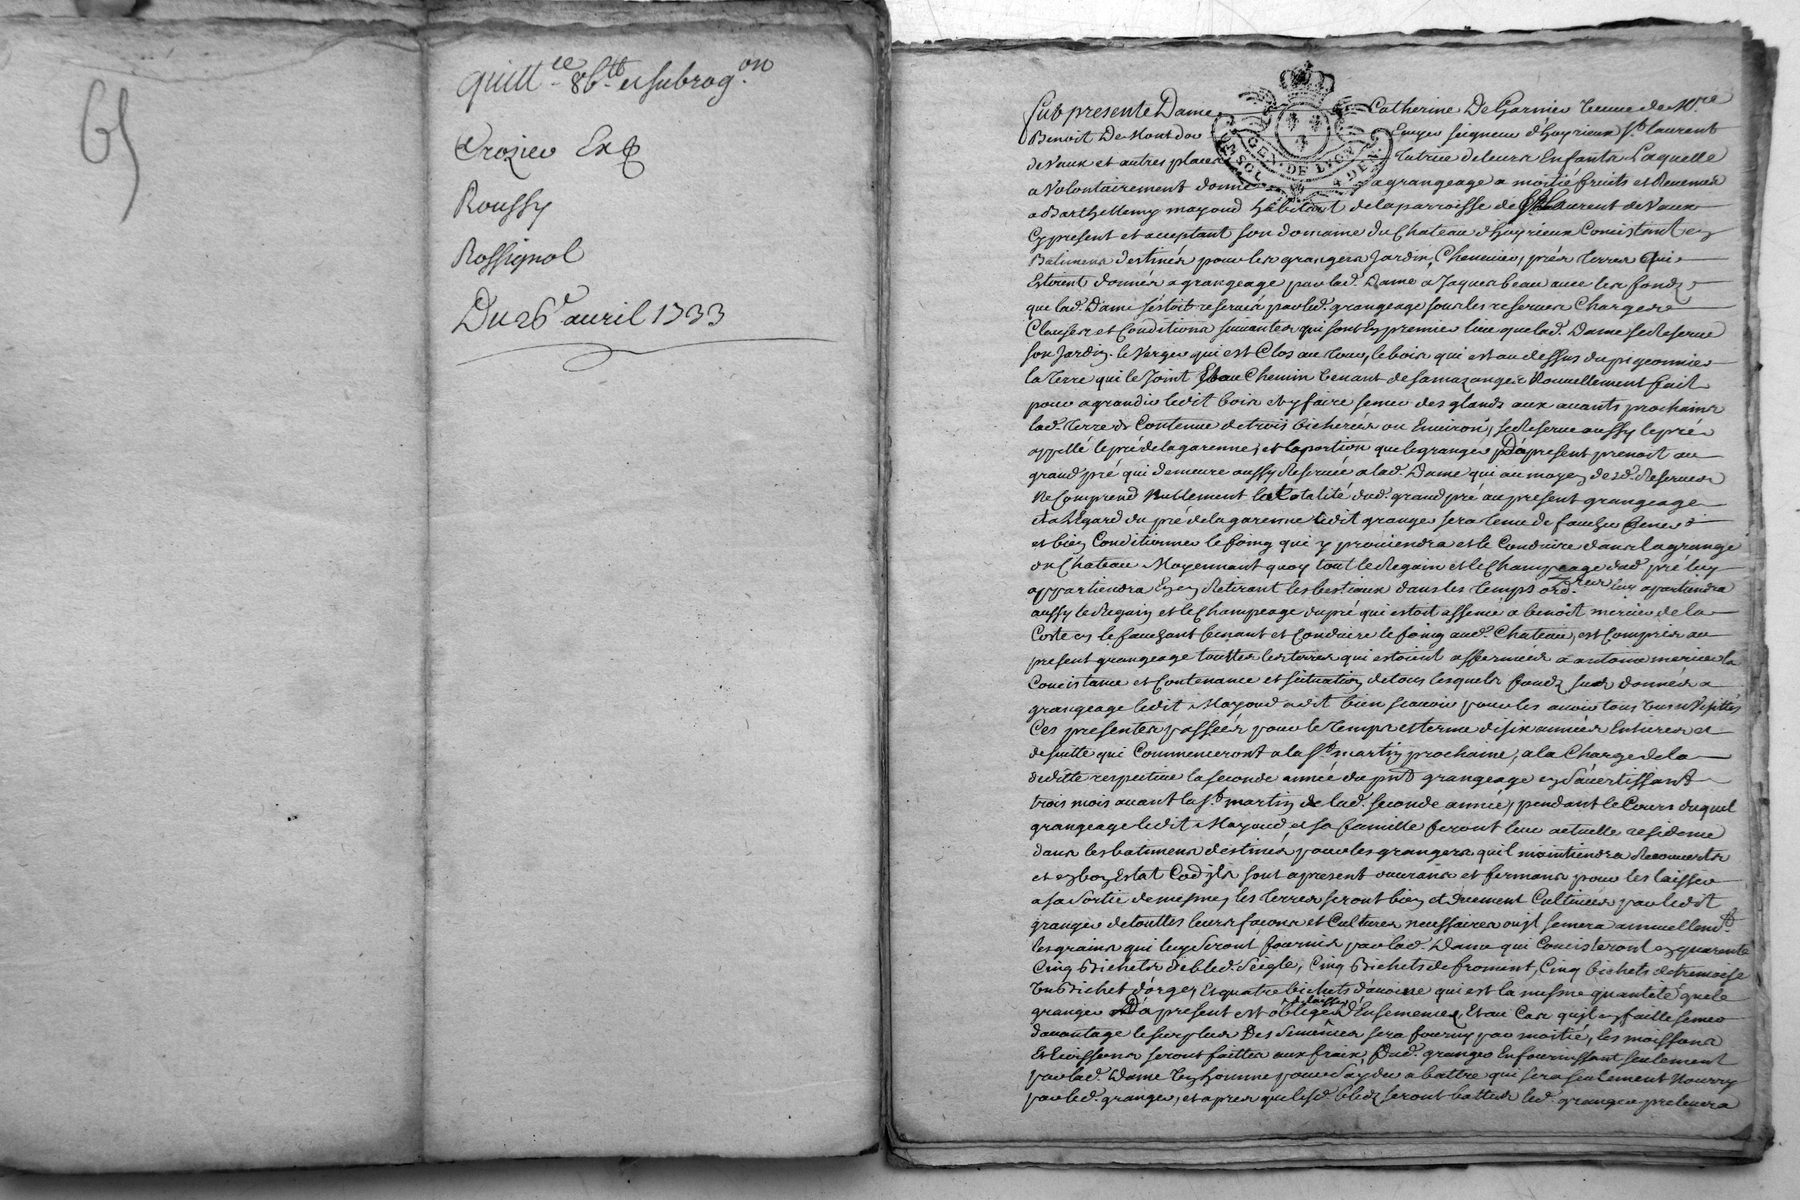 65
quittce 86tt et subrogon
Crozier Exp
Roussy
Rossignol
Du 26e avril 1733
GEN. DE LYON
SOL 4 DEN.
Fut presente Dame Catherine De Garnier veuve de Mre
Benoit De Montdor Ecuyer seigneur d'hoyrieux St laurent
de Vaux et autres places tutrice de leurs Enfants Laquelle
a Volontairement donné a grangeage a moitié fruits et Revenus
a Barthellemy mayoud habitant de la parroisse de St Laurent de Vaux
Cy present et acceptant son domaine du Chateau d'hoyrieux Concistant en
Batimens destinés pour les grangers Jardin, Cheneviere, prés terres qui
Estoient donnés a grangeage par lad. Dame a Jaques beau avec les fonds
que lad. Dame s'estoit reservés par led. grangeage sous les reserves Charges
Clauses et Conditions suivantes qui sont En premier lieu que lad. Dame se Reserve
son Jardin, le Verger qui est Clos au tour, le bois qui est au dessus du pigeonnier
la terre qui le Joint Et au Chemin tenant de Nouvellement fait
pour agrandir ledit bois et y faire semer des glands aux avants prochains
lad. terre Contenue de trois bicherées ou Environ, se Reserve aussy le pré
appellé le pré de la garenne, et la portion que le granger Dapresent prenoit au
grand pré qui demeure aussy Reservée a lad. Dame qui au moyen desd. Reserves
Ne Comprend Nullement la totalité dud. grand pré au present grangeage
Et a L'Egard du pré de la garenne ledit granger sera tenu de faucher fener
et bien Conditionner le foing qui y proviendra et le Conduire dans la grange
du Chateau Moyennant quoy tout le Regain et le Champeage dud. pré luy
appartiendra En en Retirant les bestiaux dans les temps ordres luy apartiendra
aussy le Regain et le Champeage du pré qui estoit affermé a benoit mercier de la
Coste en le fauchant fenant et Conduire le foing aud. Chateau, est Compris au
present grangeage touttes les terres qui estoient affermées a antoine mercier la
Concistance et Contenance et scituation de tous lesquels fonds sus donnés a
grangeage ledit Mayoud a dit bien scavoir pour les avoir tous Vus et Visittés
Ces presentes passées pour le temps et terme de six années Entieres et
de suitte qui Commenceront a la St martin prochaine, a la Charge de la
deditte respective la seconde année du pnt grangeage en s'avertissant
trois mois avant la St martin de lad. seconde année, pendant le Cours duquel
grangeage ledit Mayoud et sa famille feront leur actuelle residence
dans les batimens destinés pour les grangers qu'il maintiendra Recouverts
et en bon Estat Co'd ils sont apresent ouvrans et fermans pour les laisser
a sa Sortie de mesme, les terres seront bien et Duement Cultivées par ledit
granger de touttes leurs façons et Cultures necessaires ou il semera annuellemt
les grains qui luy seront fournis par lad. Dame qui Concisteront en quarente
Cinq Bichets de bled Seigle, Cinq Bichets de froment, Cinq bichets de tremoise
Un Bichet d'orge, Et quatre bichets d'avoine qui est la mesme quantité que le
granger Dapresent est obligé de laisser D'Ensemencé, Et au Cas qu'il en faille semer
davantage le surplus Des semences sera fourny par moitié, les moissons
Et livissons seront faittes aux fraix Dud. granger En fournissant seulement
par lad. Dame Un homme pour s'ayder a battre qui sera seulement Nourry
par led. granger, et apres que lesd. bleds seront battus led. granger prelevera